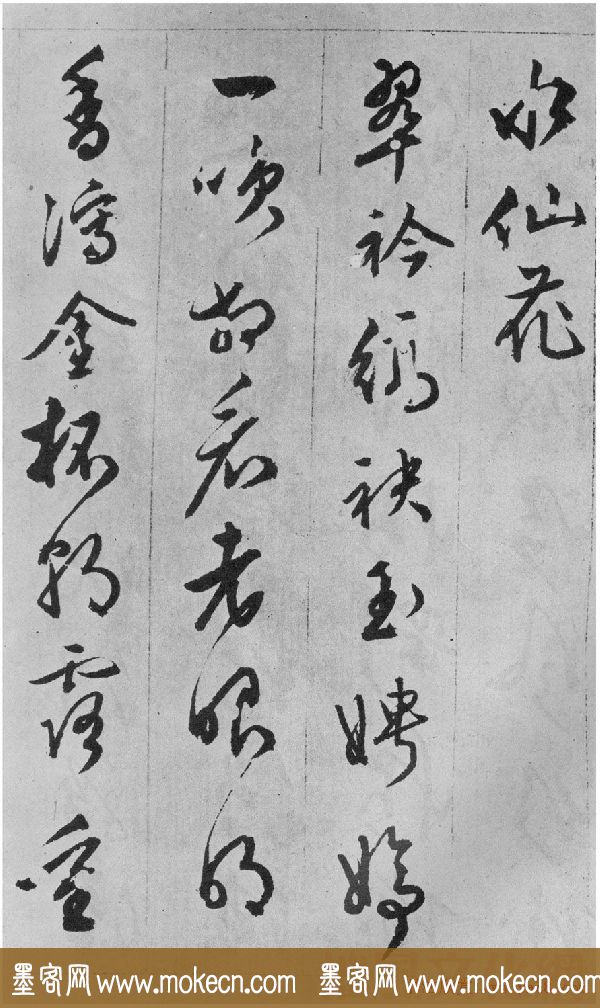 水仙花
翠衿縞袂玉娉婷
一咲相看老眼明
香瀉金杯朝露重
墨客网 www.mokecn.com 墨客网 www.mokecn.com